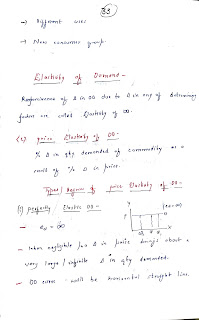 33
→ Different uses
→ New consumer group.
Elasticity of Demand -
Responsiveness of Δ in DD due to Δ in any of determining
factors are called Elasticity of DD.
price Elasticity of DD -
% Δ in qty demanded of commodity as a
result of % Δ in price.
Types/ degrees of price Elasticity of DD -
(1) perfectly Elastic DD -
- ed = ∞
- when negligible Δ in price brings about a
very large / infinite Δ in qty demanded.
- DD curve will be horizontal straight line.
Y
P
(ed = ∞)
X